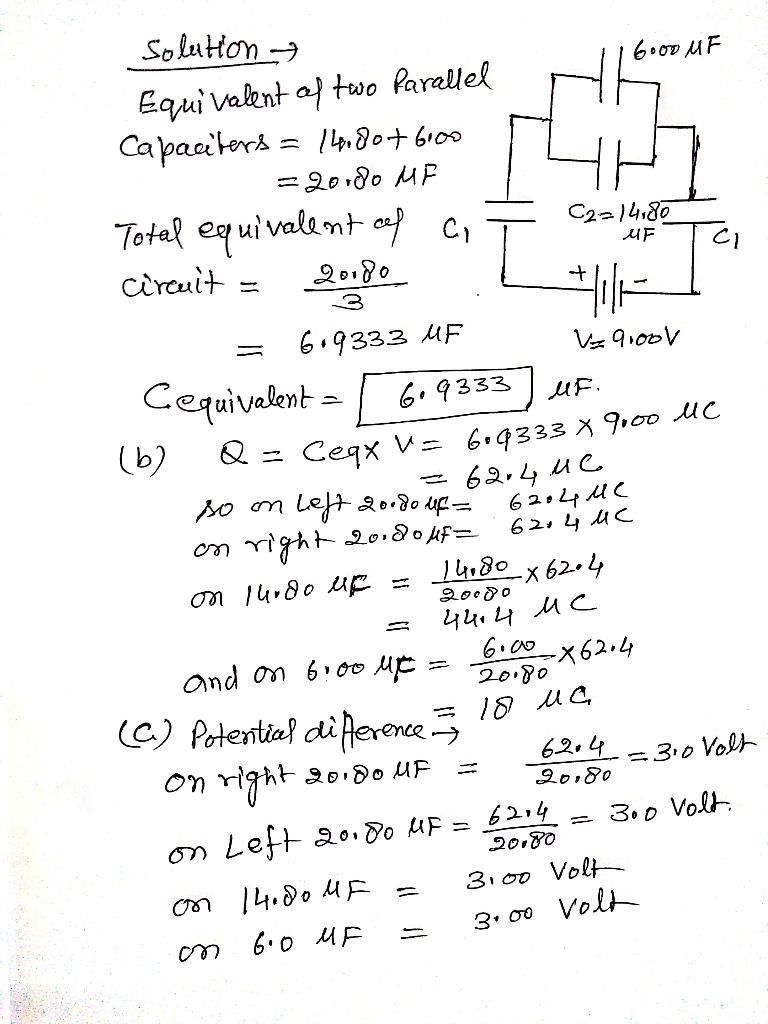 Solution →
6.00 MF
Equivalent of two Parallel
Capacitors = 14.80 + 6.00
= 20.80 MF
C2 = 14.80
MF
C1
C1
Total equivalent of
circuit = 20.80
3
+ -
= 6.9333 MF
V = 9.00V
Cequivalent = 6.9333 MF.
(b) Q = Ceq x V = 6.9333 x 9.00 MC
= 62.4 MC
so on Left 20.80 MF = 62.4 MC
on right 20.80 MF = 62.4 MC
on 14.80 MF = 14.80 x 62.4
20.80
= 44.4 MC
and on 6.00 MF = 6.00 x 62.4
20.80
= 18 MC
(C) Potential difference →
on right 20.80 MF = 62.4 = 3.0 Volt
20.80
on Left 20.80 MF = 62.4 = 3.0 Volt.
20.80
on 14.80 MF = 3.00 Volt
on 6.0 MF = 3.00 Volt